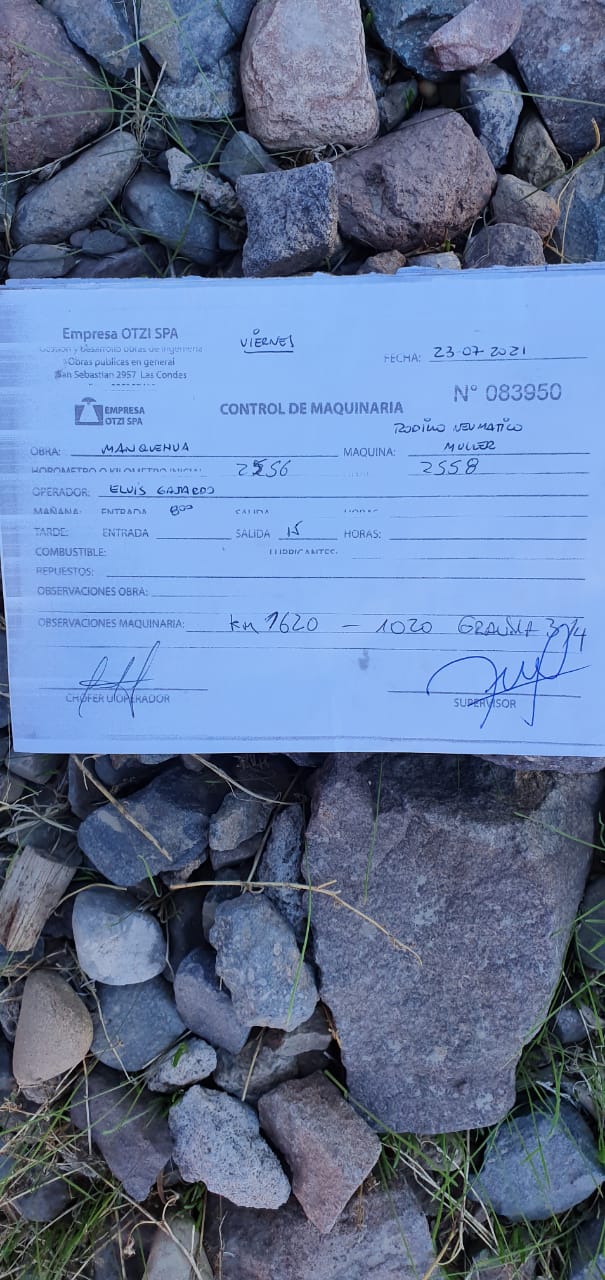 Empresa OTZI SPA
Gestión y Desarrollo obras de Ingeniería
Obras publicas en general
San Sebastian 2957 Las Condes
VIERNES
FECHA: 23-07-2021
N° 083950
EMPRESA
OTZI SPA
CONTROL DE MAQUINARIA
RODILLO NEUMATICO
OBRA: MANQUEHUA MAQUINA: MULLER
HOROMETRO O KILOMETRO INICIAL 2556 2558
OPERADOR: ELVIS GAJARDO
MAÑANA: ENTRADA 8:00 SALIDA HORAS:
TARDE: ENTRADA SALIDA 15 HORAS:
COMBUSTIBLE: LUBRICANTES:
REPUESTOS:
OBSERVACIONES OBRA:
OBSERVACIONES MAQUINARIA: KM 1620 - 1020 3/4
CHOFER U OPERADOR
SUPERVISOR